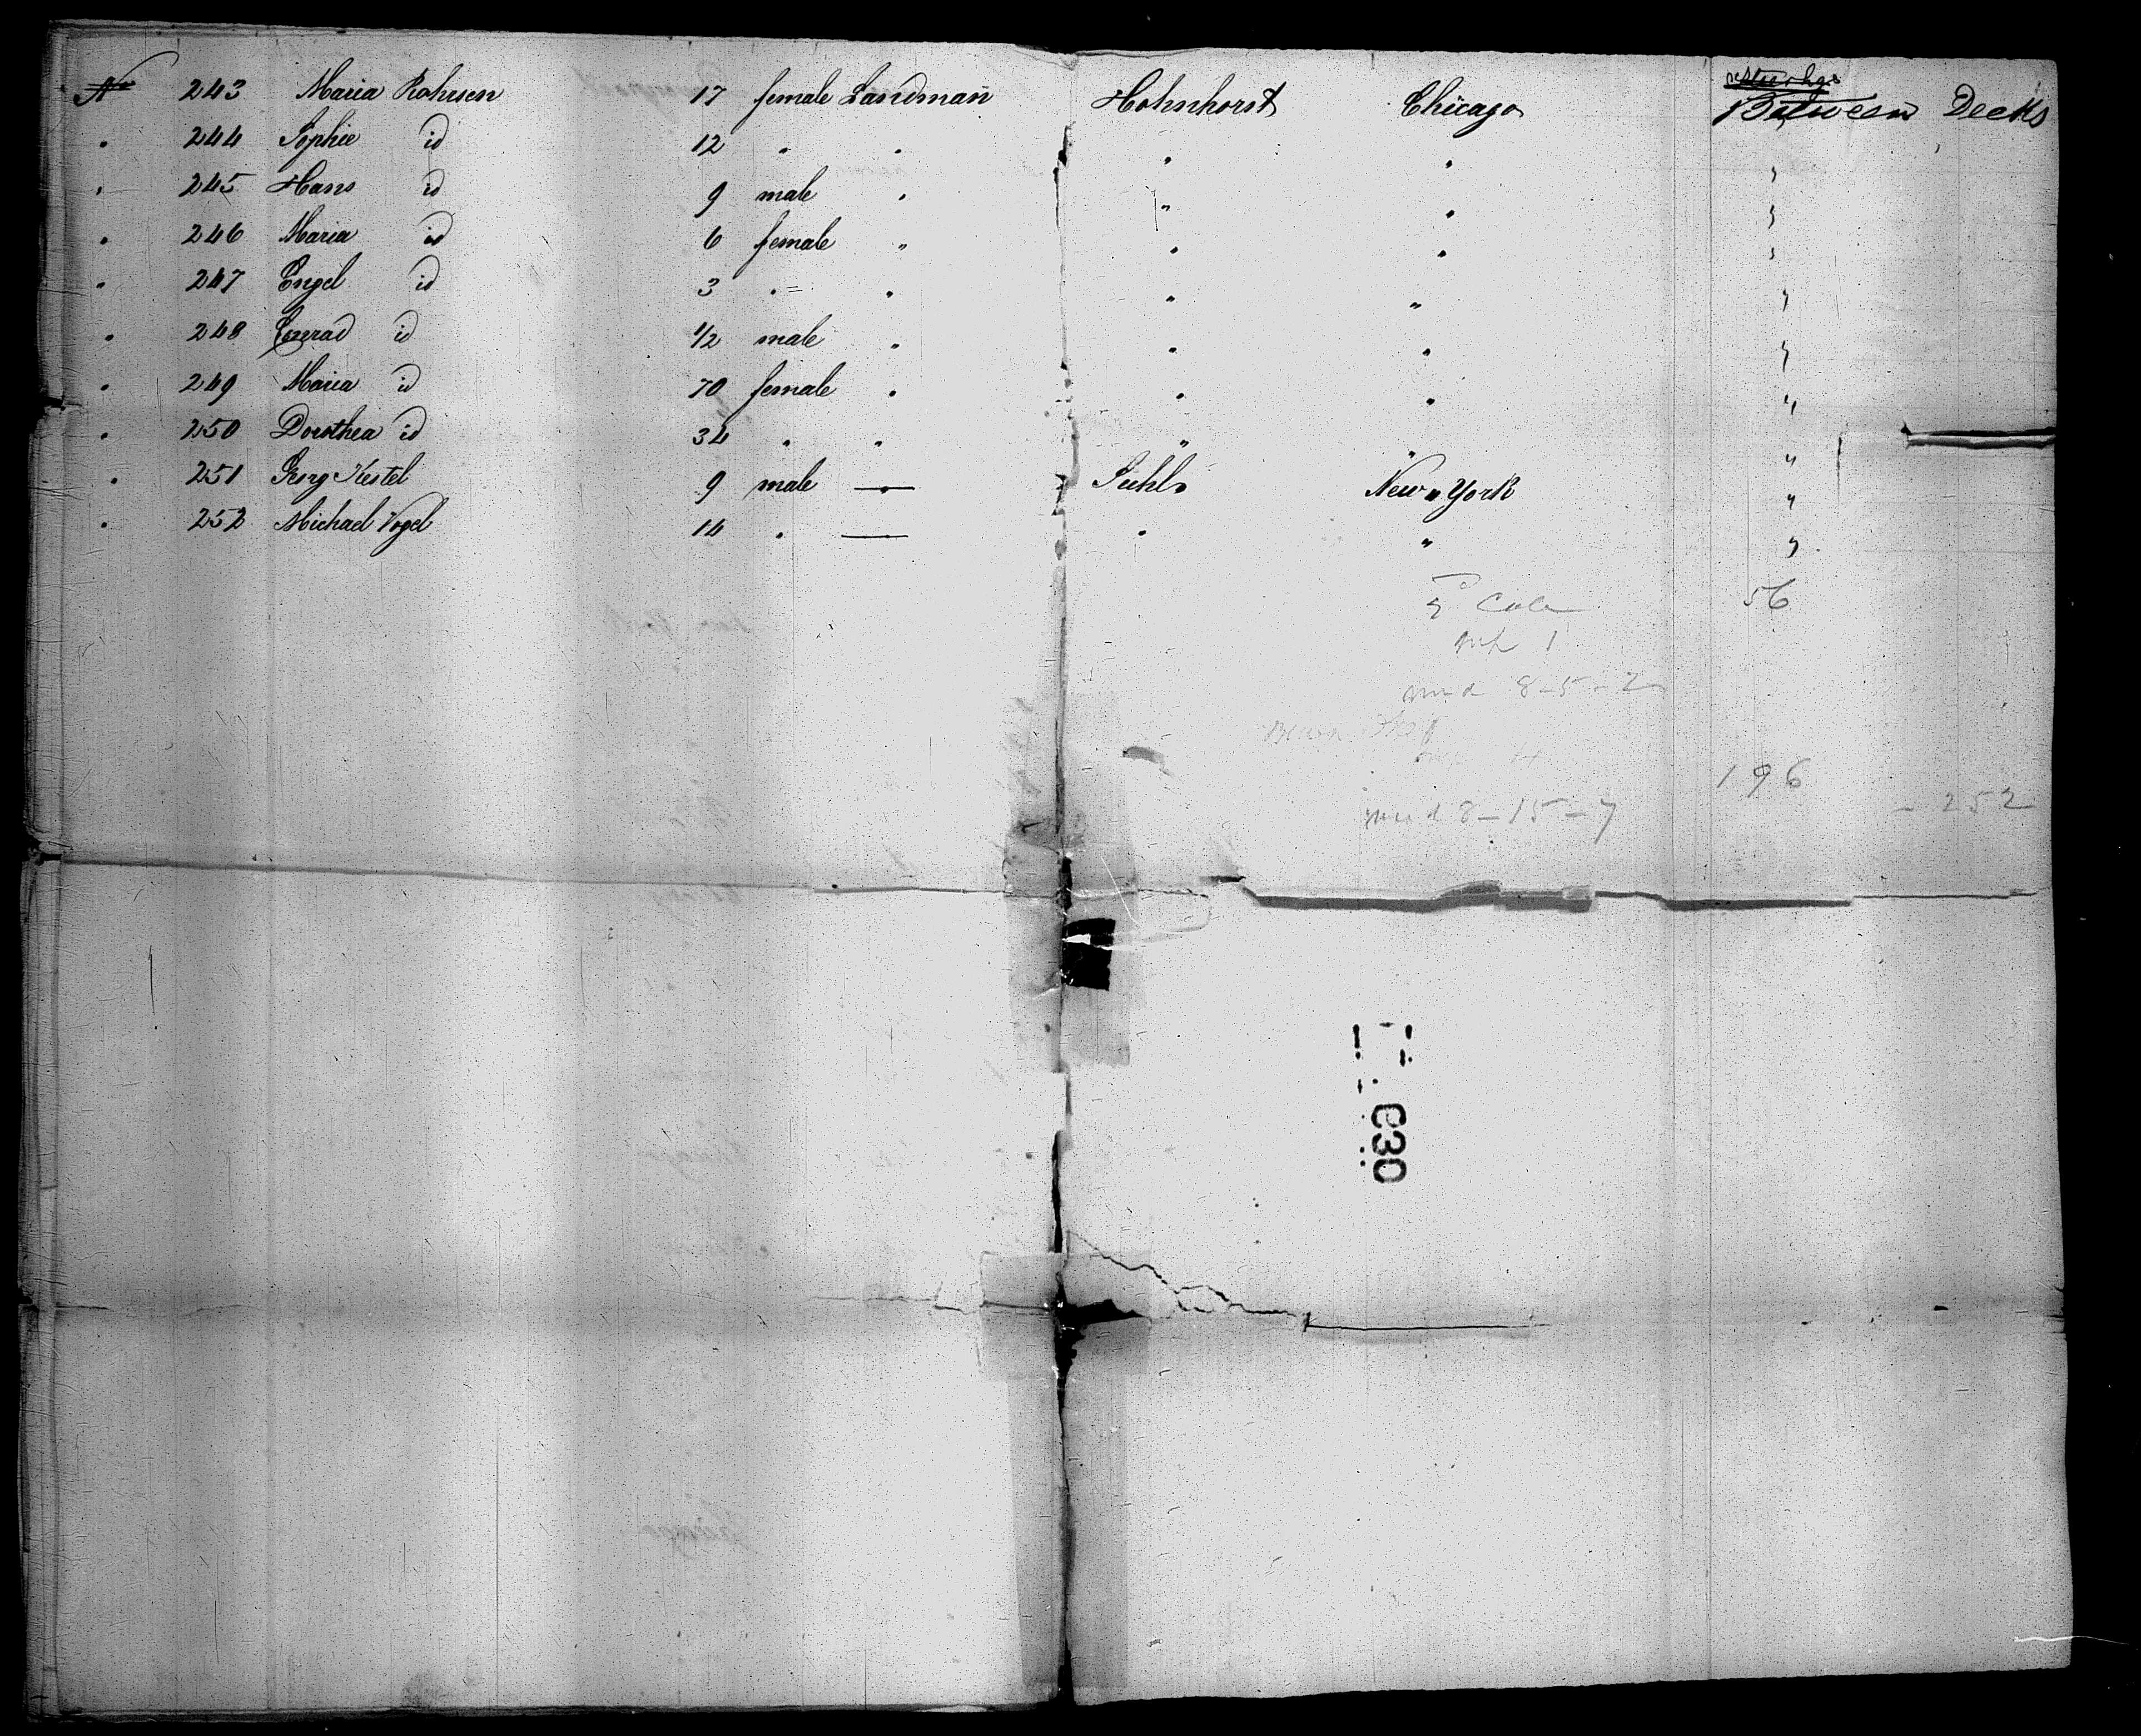 No 243 Maria Rohrsen 17 female Landmañ Hohnhorst Chicago Between Decks
" 244 Sophie id 12 " " " " "
" 245 Hans id 9 male " " " "
" 246 Maria id 6 female " " " "
" 247 Engel id 3 " " " " "
" 248 Conrad id 1/2 male " " " "
" 249 Maria id 70 female " " " "
" 250 Dorothea id 34 " " " " "
" 251 Georg Kestel 9 male — Suhl New York "
" 252 Michael Vogel 14 " — " " "
56
1
8-5-2
196
8-15-7 - 252
030